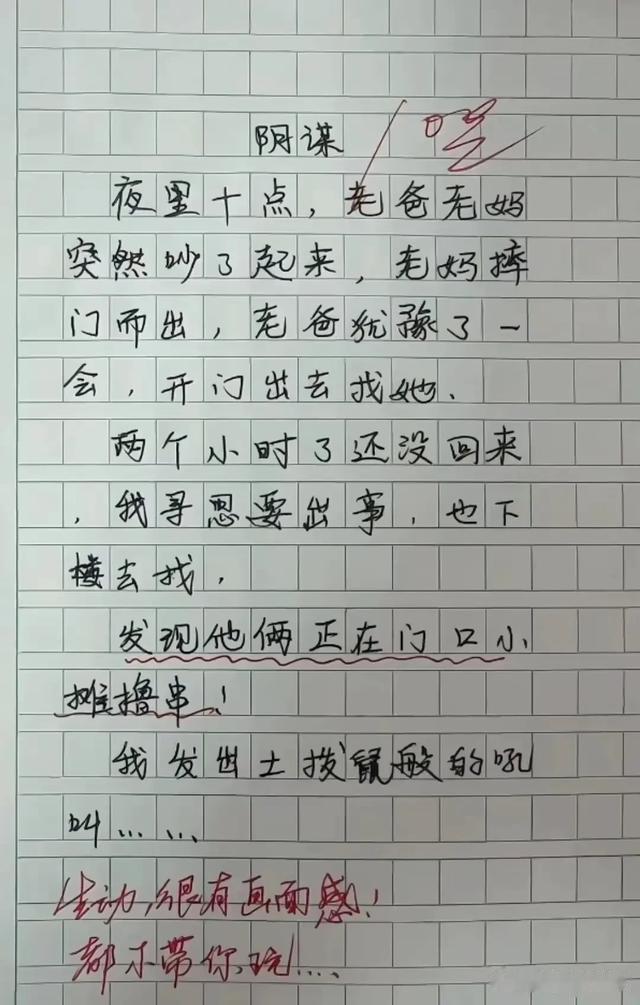 阴谋
夜里十点，老爸老妈
突然吵了起来，老妈摔
门而出，老爸犹豫了一
会，开门出去找她．
两个小时了还没回来
，我寻思要出事，也下
楼去找，
发现他俩正在门口小
摊撸串！
我发出土拨鼠般的吼
叫……
生动，很有画面感！
都不带你玩....